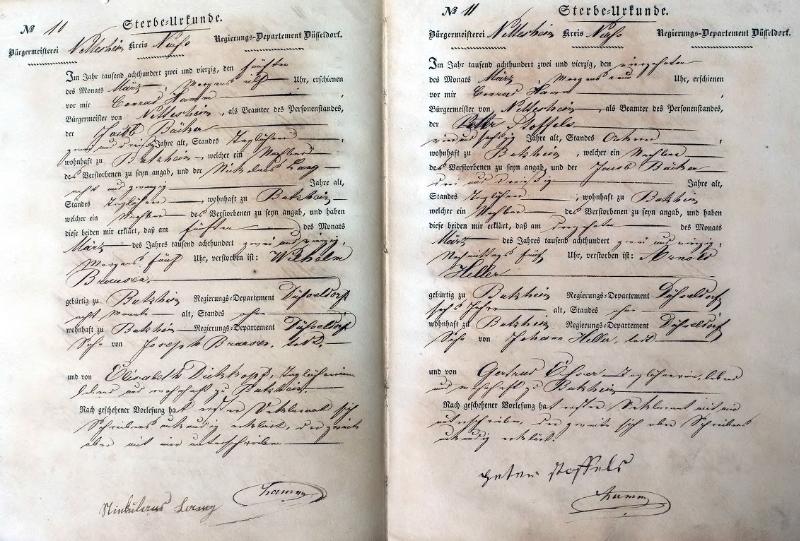 № 10 Sterbe-Urkunde.
Bürgermeisterei Nettesheim Kreis Neuß Regierungs-Departement Düsseldorf.
Im Jahr tausend achthundert zwei und vierzig, den fünften
des Monats März, Morgens acht Uhr, erschienen
vor mir Conrad Hamm,
Bürgermeister von Nettesheim, als Beamter des Personenstandes,
der Jacob Bäcker
zwei und dreißig Jahre alt, Standes Taglöhner,
wohnhaft zu Butzheim, welcher ein Nachbar
des Verstorbenen zu seyn angab, und der Nickolaus Lang
acht und zwanzig Jahre alt,
Standes Taglöhner, wohnhaft zu Butzheim,
welcher ein Nachbar des Verstorbenen zu seyn angab, und haben
diese beiden mir erklärt, daß am fünften des Monats
März des Jahres tausend achthundert zwei und vierzig,
Morgens fünf Uhr, verstorben ist: Wilhelm
gebürtig zu Butzheim Regierungs-Departement Düsseldorf
acht Monate alt, Standes
wohnhaft zu Butzheim Regierungs-Departement Düsseldorf
Sohn von Joseph
und von Elisabeth Taglöhnerin
leben und wohnhaft zu Butzheim.
Nach geschehener Vorlesung hat erster Deklarant sich
Schreibens unkundig erklärt, der zweite
aber mit mir unterschrieben
Nickolaus Lang Hamm
№ 11 Sterbe-Urkunde.
Bürgermeisterei Nettesheim Kreis Neuß Regierungs-Departement Düsseldorf.
Im Jahr tausend achthundert zwei und vierzig, den
des Monats März, Morgens neun Uhr, erschienen
vor mir Conrad Hamm,
Bürgermeister von Nettesheim, als Beamter des Personenstandes,
der Peter Stoffels
Jahre alt, Standes Ackerer,
wohnhaft zu Butzheim, welcher ein Nachbar
des Verstorbenen zu seyn angab, und der Jacob Bäcker
zwei und dreißig Jahre alt,
Standes Taglöhner, wohnhaft zu Butzheim,
welcher ein Nachbar des Verstorbenen zu seyn angab, und haben
diese beiden mir erklärt, daß am des Monats
März des Jahres tausend achthundert zwei und vierzig,
Nachmittags fünf Uhr, verstorben ist: Arnold
Heller
gebürtig zu Butzheim Regierungs-Departement Düsseldorf
sechs Jahre alt, Standes
wohnhaft zu Butzheim Regierungs-Departement Düsseldorf
Sohn von Johann Heller,
und von Gertrud Taglöhnerin, leben
und wohnhaft zu Butzheim
Nach geschehener Vorlesung hat erster Deklarant mit mir
unterschrieben, der zweite sich aber Schreibens
unkundig erklärt.
peter stoffels
Hamm